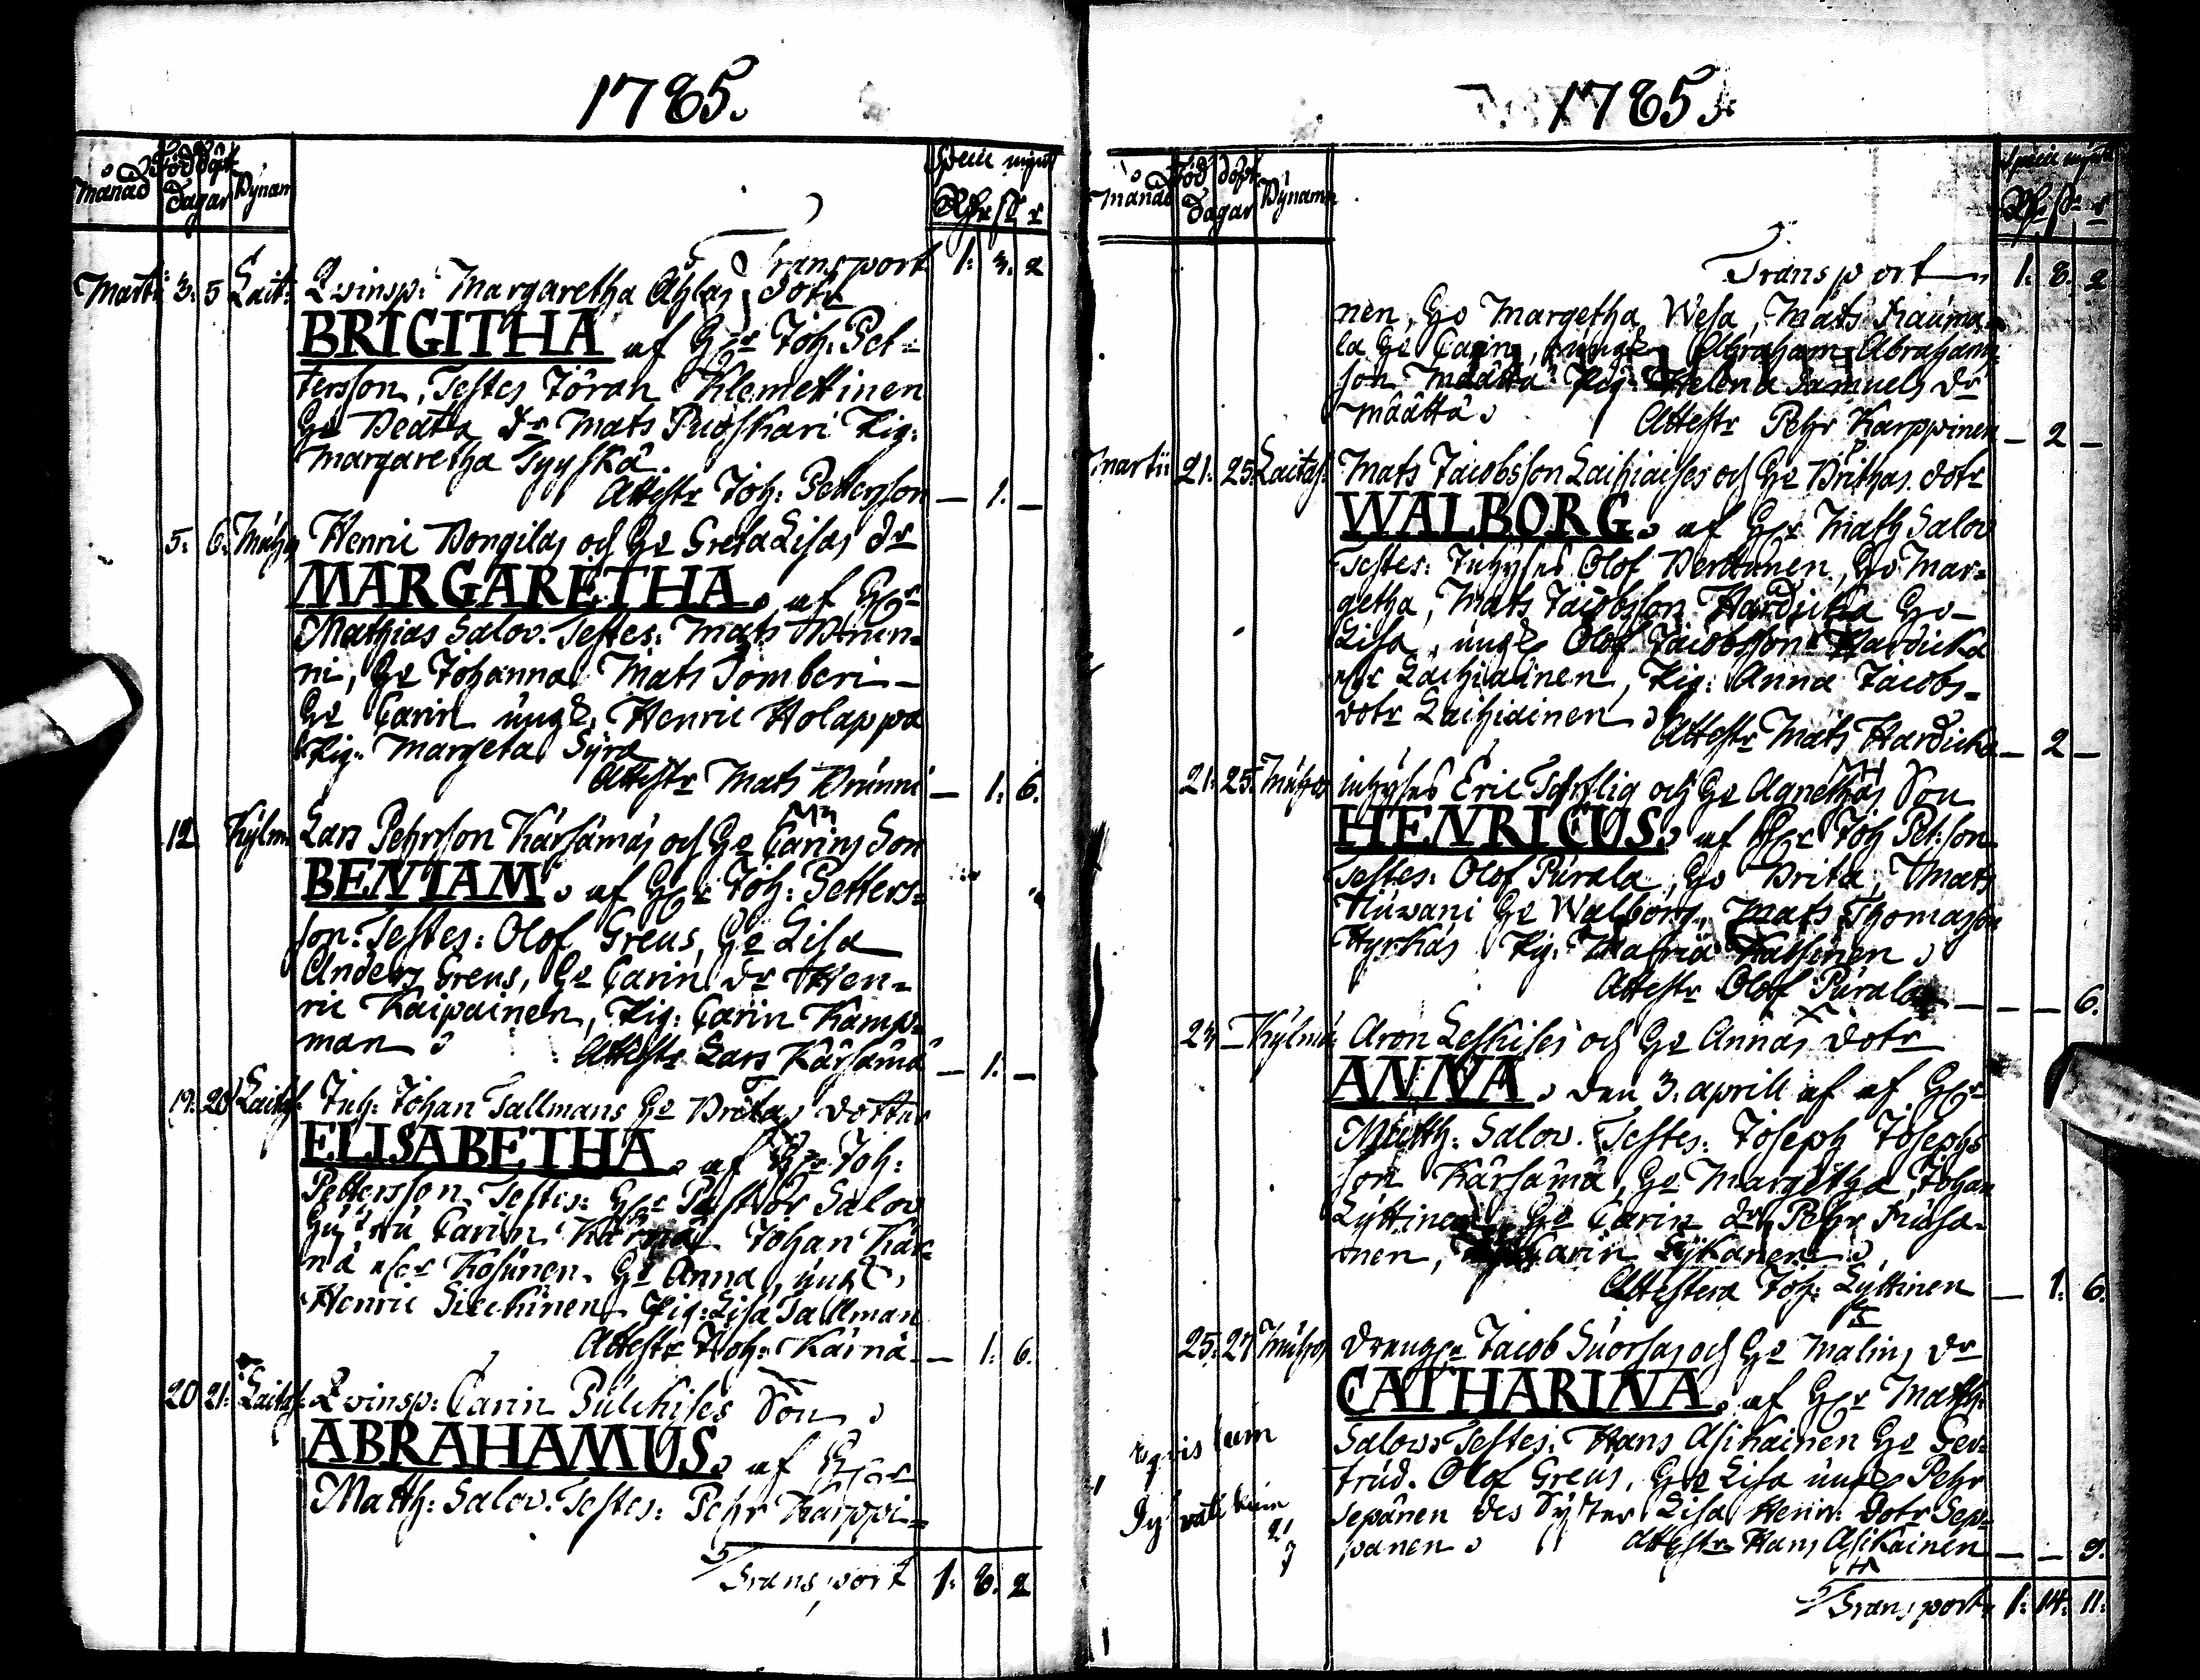 1785.
Månad Född Döpt Dagar Bÿnamn
Specie mynt
Rdr sk r
Transport 1. 3. 2
Martii 3. 5 Lait: Qvinsp: Margaretha Ahlas dotr
BRIGITHA af Hr Joh: Pet-
tersson, Testes Jöran Klemettinen
Hu Beata dr Mats Puoskari Pig:
Margaretha Tyyskä.
Attestr Joh: Pettersson — 1. —
5. 6. Muhos Henric Bongilas och Hu Greta Lisas dr
MARGARETHA, af Hr
Mathias Salov. Testes: Mats Brun-
ni, Hu Johanna Mats Tomberi-
Hu Carin ungk. Henric Holappa
Pig: Margeta Syrä
Attestr Mats Brunni — 1. 6.
12 Kylm Lars Pehrsson Kärsämäs och Hu Carins Son
BENIAM, af Hr Joh: Petters-
son. Testes: Olof Greus, Hu Lisa
Anders Greus, Hu Carin dr Hen-
ric Kaipainen, Pig: Carin Kamp-
man
Attestr Lars Kärsämä — 1. —
17. 20 Laitas: Inh: Johan Tallmans Hu Britas dotter
ELISABETHA, af Hr Joh:
Pettersson. Testes: Hr Pastor Salov
Hustru Carin Kärnä Johan Kär-
nä eler Kosunen. Hu Anna, ungk.
Henric Siekkinen Pig: Lisa Tallman
Attestr Joh: Kärnä — 1. 6.
20 21: Laitas: Qvinsp: Carin Pulckises Son
ABRAHAMUS, af Hr
Matth: Salov. Testes: Pehr Karppi-
Transport 1. 8. 2
1785.
Månad Född Döpt Dagar Bÿnamn
Specie mynt
Rdr sk r
Transport 1. 8. 2
nen, Hu Margetha Wesa, Mats Rauma-
la Hu Carin, ungk Abraham Abrahams-
son Määttä Pig: Helena Samuels dr
Määttä
Attestr Pehr Karppinen — 2 —
Martii 21. 25. Laitas: Mats Jacobsson Laihiaises och Hu Brithas dotr
WALBORG, af Hr Math Salov
Testes: Inhyses Olof Verttunen, Hu Mar-
getha, Mats Jacobsson Hardicka Hu-
Lisa, ungk Olof Jacobsson Hardicka
eler Laihiainen, Pig: Anna Jacobs-
dotr Laihiainen
Attestr Mats Hardicka — 2 —
21. 25. Muhos inhyses Eric Tschslig och Hu Agnethas Son
HENRICUS, af Hr Joh Pet:son
Testes: Olof Purala, Hu Brita, Mats
Huwani Hu Walborg, Mats Thomasson
Hyrkäs Pig: Malria Katsinen
Attestr Olof Purala — — 6.
24 — Kylmä: Aron Leskises och Hu Annas dotr
ANNA, den 3. aprill af af Hr
Matth: Salov. Testes: Joseph Josephs
son Kärsämä, Hu Margetha, Johan
Lyttinen Hu Carin dr Pehr Kursa-
nen, Carin Lykanen
Attestera Joh: Lyttinen — 1. 6.
25. 27 Muhos drängen Jacob Suorsas och Hu Malins dr
CATHARINA, af Hr Matth:
Salov. Testes: Hans Asikainen Hu Ger-
trud. Olof Greus, Hu Lisa ungk Pehr
Sepänen des Syster Lisa Henr: Dotr Sep-
pänen
Attestr Hans Asikainen — — 9.
Transport 1. 14. 11.